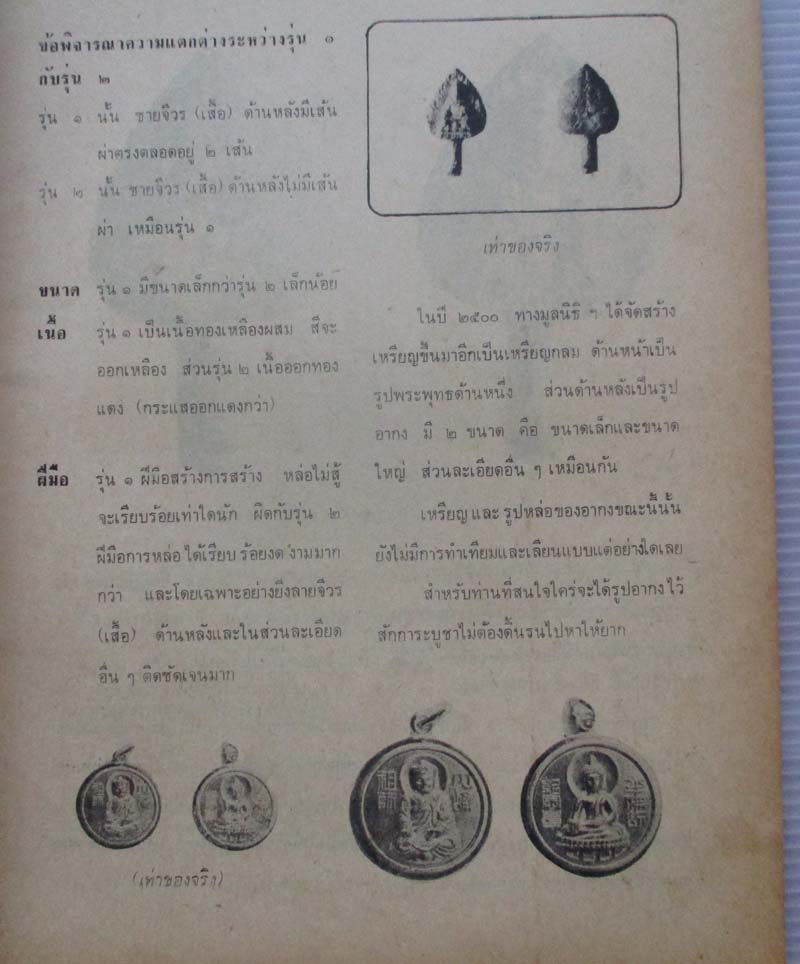 ข้อพิจารณาความแตกต่างระหว่างรุ่น ๑
กับรุ่น ๒
รุ่น ๑ นั้น ชายจีวร (เสื้อ) ด้านหลังมีเส้น
ผ่าตรงตลอดอยู่ ๒ เส้น
รุ่น ๒ นั้น ชายจีวร (เสื้อ) ด้านหลังไม่มีเส้น
ผ่า เหมือนรุ่น ๑
ขนาด รุ่น ๑ มีขนาดเล็กกว่ารุ่น ๒ เล็กน้อย
เนื้อ รุ่น ๑ เป็นเนื้อทองเหลืองผสม สีจะ
ออกเหลือง ส่วนรุ่น ๒ เนื้อออกทอง
แดง (กระแสออกแดงกว่า)
ฝีมือ รุ่น ๑ ฝีมือสร้างการสร้าง หล่อไม่สู้
จะเรียบร้อยเท่าใดนัก ผิดกับรุ่น ๒
ฝีมือการหล่อ ได้เรียบ ร้อยงดงามมาก
กว่า และโดยเฉพาะอย่างยิ่งลายจีวร
(เสื้อ) ด้านหลังและในส่วนละเอียด
อื่น ๆ ติดชัดเจนมาก
(เท่าของจริง)
เท่าของจริง
ในปี ๒๕๐๐ ทางมูลนิธิ ฯ ได้จัดสร้าง
เหรียญขึ้นมาอีกเป็นเหรียญกลม ด้านหน้าเป็น
รูปพระพุทธด้านหนึ่ง ส่วนด้านหลังเป็นรูป
อากง มี ๒ ขนาด คือ ขนาดเล็กและขนาด
ใหญ่ ส่วนละเอียดอื่น ๆ เหมือนกัน
เหรียญ และ รูปหล่อของอากงขณะนี้นั้น
ยังไม่มีการทำเทียมและเลียนแบบแต่อย่างใดเลย
สำหรับท่านที่สนใจใคร่จะได้รูปอากง ไว้
สักการะบูชาไม่ต้องดิ้นรนไปหาให้ยาก